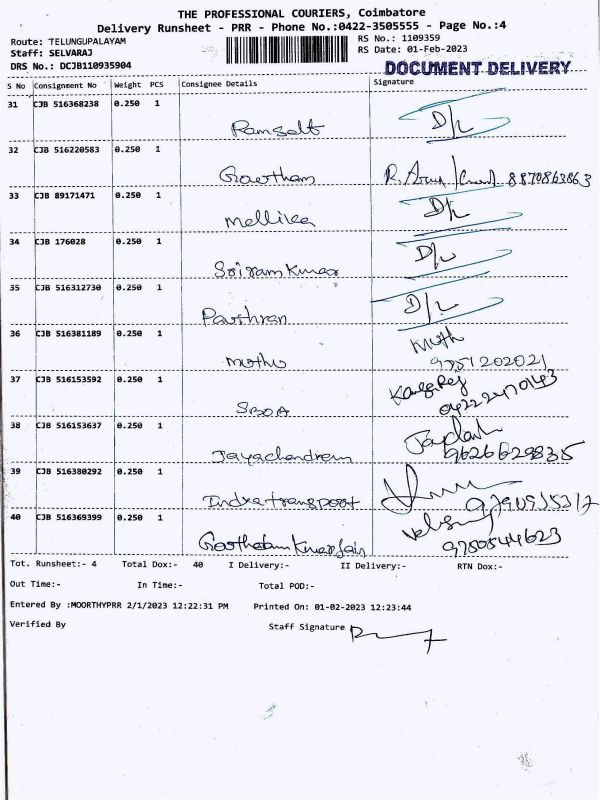 THE PROFESSIONAL COURIERS, Coimbatore
Delivery Runsheet - PRR - Phone No.:0422-3505555 - Page No.:4
Route: TELUNGUPALAYAM
RS No.: 1109359
Staff: SELVARAJ
RS Date: 01-Feb-2023
DRS No.: DCJB110935904
DOCUMENT DELIVERY
S No Consignment No Weight PCS Consignee Details Signature
31 CJB 516368238 0.250 1
D/L
32 CJB 516220583 0.250 1
Gowtham R. Arun 8870863863
33 CJB 89171471 0.250 1
Mellika D/L
34 CJB 176028 0.250 1
Sriram Kumar D/L
35 CJB 516312730 0.250 1
D/L
36 CJB 516381189 0.250 1
Muthu Muth
9751202021
37 CJB 516153592 0.250 1
SBOA
04222470143
38 CJB 516153637 0.250 1
Jayachandren
9626629835
39 CJB 516380292 0.250 1
Indra transport
40 CJB 516369399 0.250 1
9750544623
Tot. Runsheet:- 4 Total Dox:- 40 I Delivery:- II Delivery:- RTN Dox:-
Out Time:- In Time:- Total POD:-
Entered By :MOORTHYPRR 2/1/2023 12:22:31 PM Printed On: 01-02-2023 12:23:44
Verified By Staff Signature